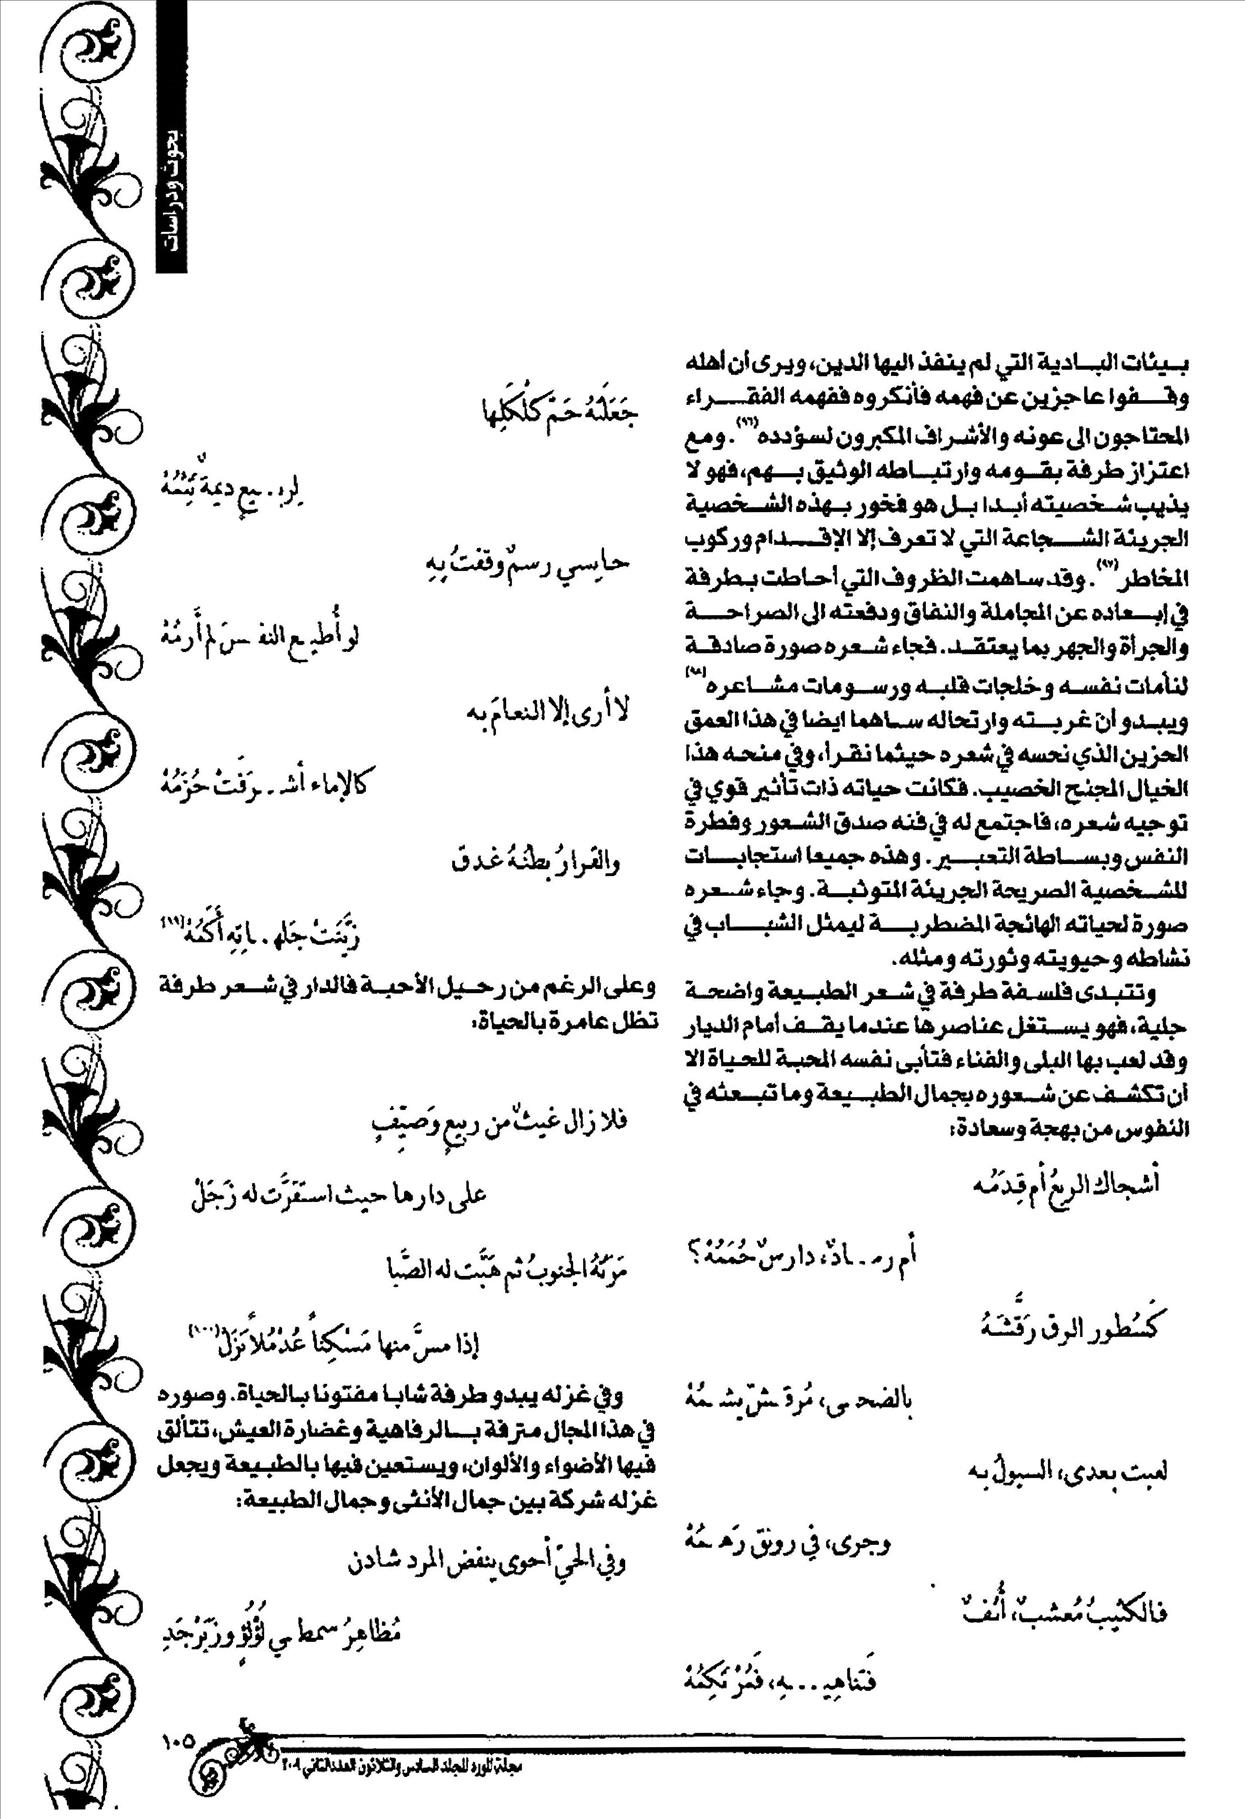 بحوث ودراسات
بيئات البادية التي لم ينفذ اليها الدين، ويرى أن أهله
وقفوا عاجزين عن فهمه فأنكروه ففهمه الفقراء
المحتاجون الى عونه والأشراف المكبرون لسؤدده(٩٦). ومع
اعتزاز طرفة بقومه وارتباطه الوثيق بهم، فهو لا
يذيب شخصيته أبدا بل هو فخور بهذه الشخصية
الجريئة الشجاعة التي لا تعرف إلا الإقدام وركوب
المخاطر(٩٧). وقد ساهمت الظروف التي أحاطت بطرفة
في إبعاده عن المجاملة والنفاق ودفعته الى الصراحة
والجرأة والجهر بما يعتقد. فجاء شعره صورة صادقة
لنأمات نفسه وخلجات قلبه ورسومات مشاعره(٩٨)
ويبدو أن غربته وارتحاله ساهما ايضا في هذا العمق
الحزين الذي نحسه في شعره حيثما نقرأ، وفي منحه هذا
الخيال المجنح الخصيب. فكانت حياته ذات تأثير قوي في
توجيه شعره، فاجتمع له في فنه صدق الشعور وفطرة
النفس وبساطة التعبير. وهذه جميعا استجابات
للشخصية الصريحة الجريئة المتوثبة. وجاء شعره
صورة لحياته الهائجة المضطربة ليمثل الشباب في
نشاطه وحيويته وثورته ومثله.
وتتبدى فلسفة طرفة في شعر الطبيعة واضحة
جلية، فهو يستغل عناصرها عندما يقف أمام الديار
وقد لعب بها البلى والفناء فتأبى نفسه المحبة للحياة الا
أن تكشف عن شعوره بجمال الطبيعة وما تبعثه في
النفوس من بهجة وسعادة:
أشجاك الربعُ أم قِدَمُه
أم رمـادٌ، دارسٌ حُمَمُهْ؟
كَسُطور الرق رَقَّشَهُ
بالضحى، مُرقشٌ يشمُهْ
لعبت بعدي، السيولُ به
وجرى، في رونق رَهمُهْ
فالكثيبُ مُعشبٌ، أُنفٌ
فَتناهيـهِ، فَمُرْتكِمُهْ
جَعَلَتهُ حَمَّ كَلْكَلِها
لِربـيعٍ ديمةٌ تَثِمُهْ
حابسي رسمٌ وقفتُ بِهِ
لو أُطيع النفسَ لم أَرِمُهْ
لا أرى إلا النعامَ به
كالإماء أشـرَفَتْ حُزَمُهْ
والقرارُ بطنُهُ غدق
زيَّنَتْ جَلهـاتِه أَكَمُهْ(٩٩)
وعلى الرغم من رحيل الأحبة فالدار في شعر طرفة
تظل عامرة بالحياة:
فلا زال غيثٌ من ربيعٍ وَصَيّفٍ
على دارها حيث استقرَّت له زَجَلْ
مَرَتهُ الجنوبُ ثم هَبَّت له الصَّبا
إذا مسَّ منها مَسْكِناً عُدْمُلاً نَزَلْ(١٠٠)
وفي غزله يبدو طرفة شابا مفتونا بالحياة. وصوره
في هذا المجال مترفة بالرفاهية وغضارة العيش، تتألق
فيها الأضواء والألوان، ويستعين فيها بالطبيعة ويجعل
غزله شركة بين جمال الأنثى وجمال الطبيعة:
وفي الحيّ أحوى ينفض المرد شادن
مُظاهِرُ سمطي لُؤلُؤٍ وزَبَرْجَدِ
١٠٥
مجلة المورد المجلد السادس والثلاثون العدد الثاني ٢٠٠٩